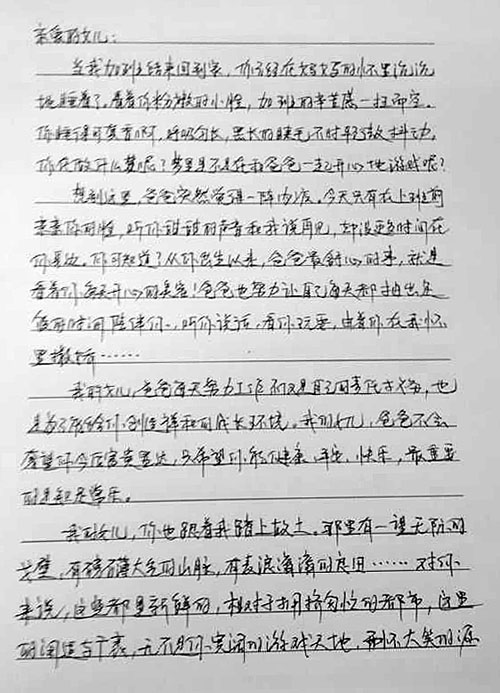 亲爱的女儿:
当我加班结束回到家，你已经在妈妈的怀里沉沉
地睡着了。看着你粉嫩的小脸，加班的辛苦荡一扫而空。
你睡得可真香啊，呼吸匀长，黑长的睫毛不时轻微抖动，
你在做什么梦呢？梦里是不是在和爸爸一起开心地游戏呢？
想到这里，爸爸突然觉得一阵内疚。今天只有在上班前
亲亲你的脸，听你甜甜的声音和我说再见，却没更多时间在
你身边。你可知道？从你出生以来，爸爸最舒心的事，就是
看着你每天开心的笑容！爸爸也努力让自己每天都抽出足
够的时间陪伴你，听你说话，看你玩耍，由着你在我怀
里撒娇……
我的女儿，爸爸每天努力工作不仅是自己的责任，也
是为了能给你创造祥和的成长环境。我的女儿，爸爸不会
奢望你今后富贵显达，只希望你能健康、平安、快乐，最重要
的是知足常乐。
我的女儿，你也跟着我踏上故土。那里有一望无际的
戈壁，有磅礴大气的山脉，有麦浪滚滚的良田……对你
来说，这些都是新鲜的，相对于拥挤匆忙的都市，这里
的阔达与广袤，无不是你宽阔的游戏天地，开怀大笑的源